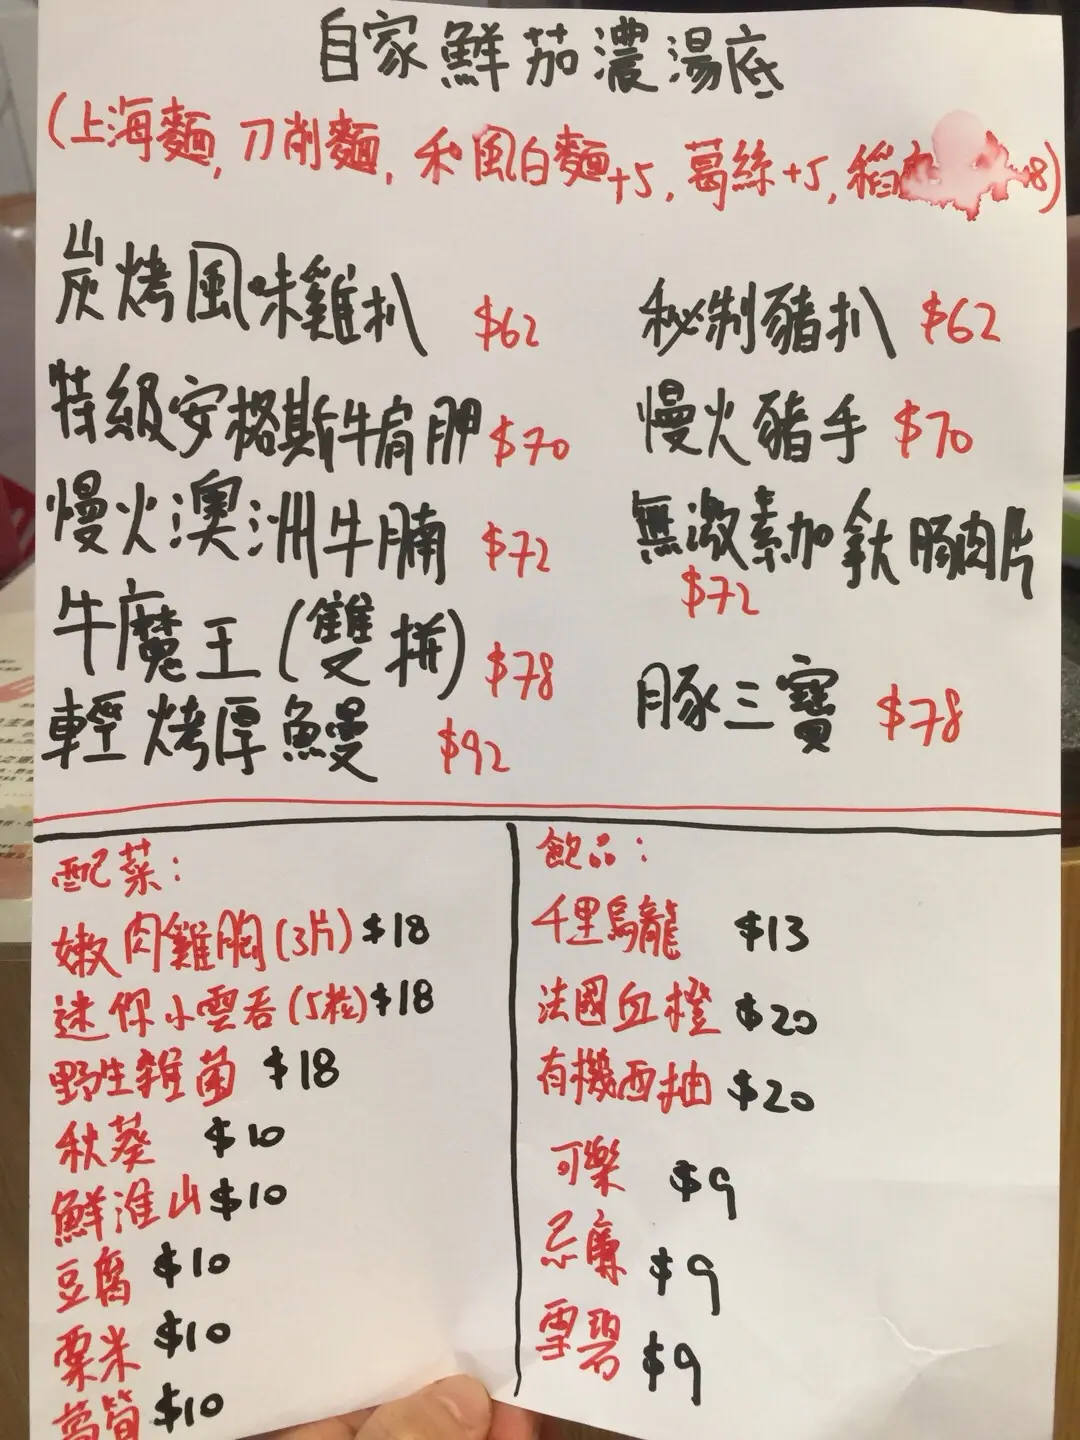 自家鮮茄濃湯底
(上海麵, 刀削麵, 和風白麵+5, 葛絲+5, 稻 8)
炭烤風味雞扒 $62
特級安格斯牛肩胛 $70
慢火澳洲牛腩 $72
牛魔王(雙拼) $78
輕烤厚鰻 $92
秘制豬扒 $62
慢火豬手 $70
無激素加拿大豚肉片
$72
豚三寶 $78
配菜:
嫩肉雞胸(3片) $18
迷你小雲吞(5粒) $18
野生雜菌 $18
秋葵 $10
鮮淮山 $10
豆腐 $10
粟米 $10
萵筍 $10
飲品:
千里烏龍 $13
法國血橙 $20
有機西柚 $20
可樂 $9
忌廉 $9
雪碧 $9